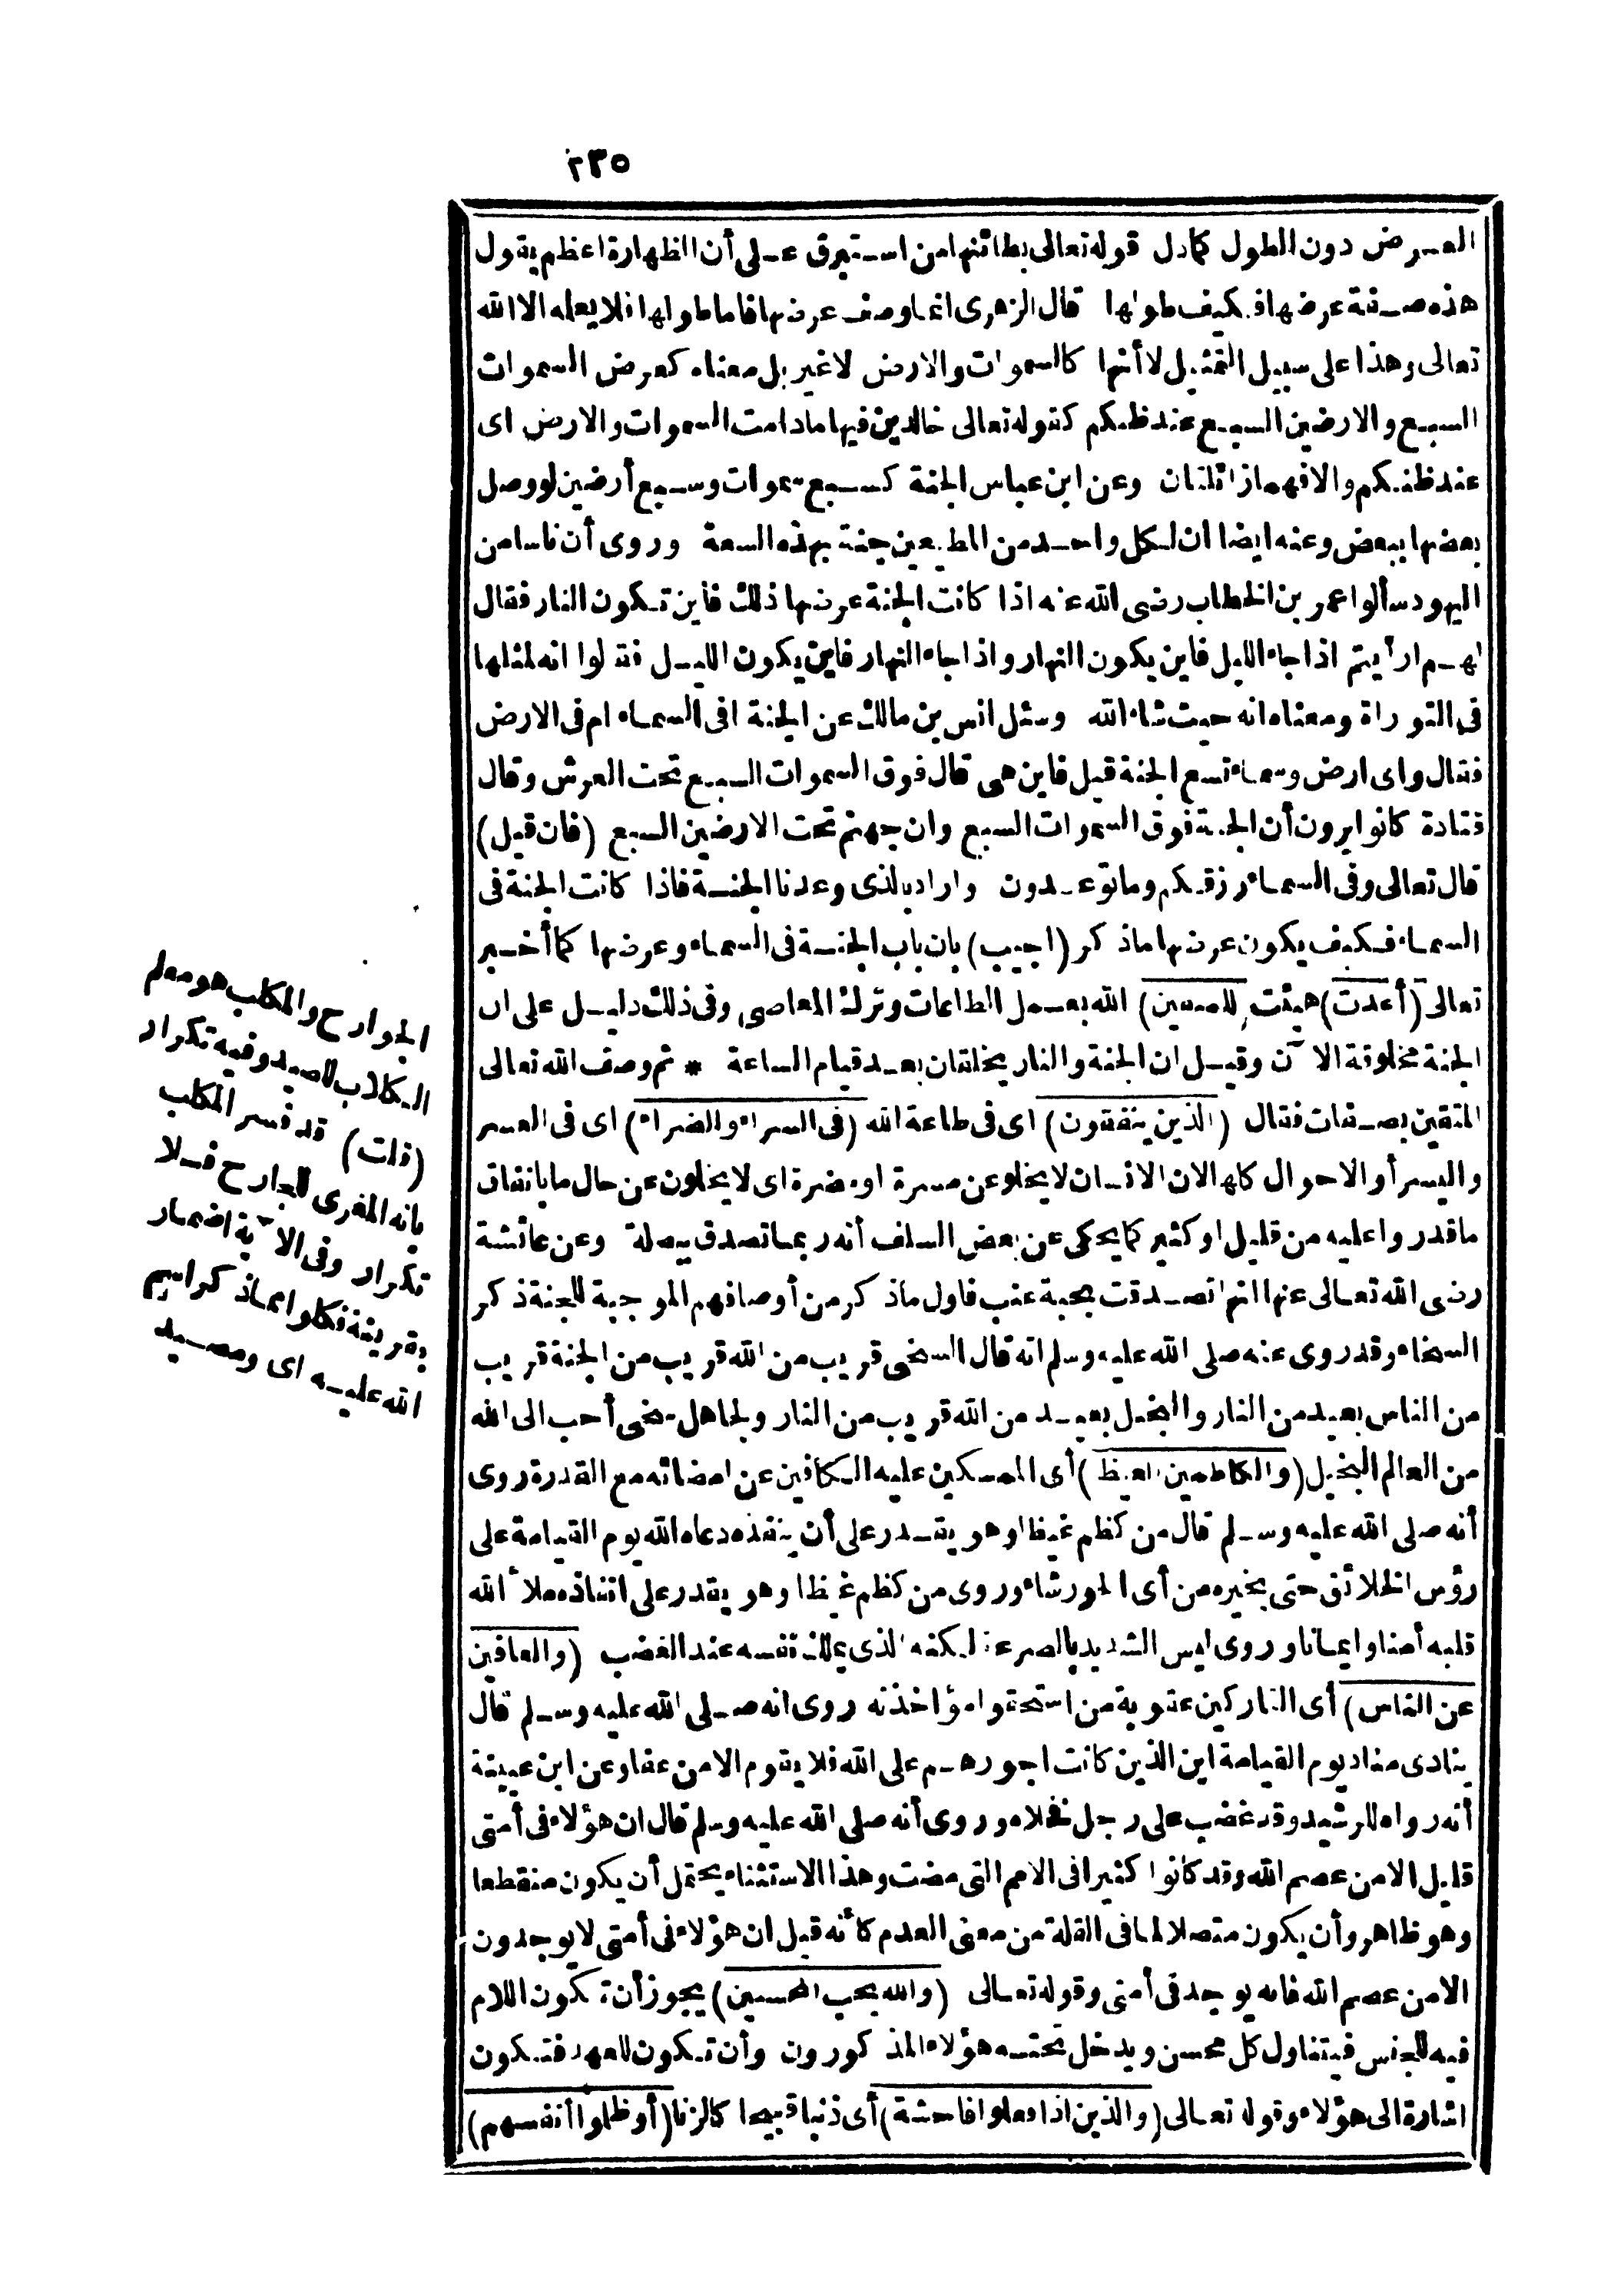 ٢٣٥
العرض دون الطول كمادل قوله تعالى بطائنها من استبرق على أن الظهارة اعظم يقول
هذه صفة عرضها فكيف طولها قال الزهرى انما وصف عرضها فاما طولها فلا يعلمه الا الله
تعالى وهذا على سبيل التمثيل لا أنها كالسموات والارض لا غير بل معناه كعرض السموات
السبع والارضين السبع عند ظنكم كقوله تعالى خالدين فيها مادامت السموات والارض اى
عند ظنكم والا فهما زائلتان وعن ابن عباس الجنة كسبع سموات وسبع أرضين لو وصل
بعضها ببعض وعنه ايضا ان لكل واحد من المطيعين جنة بهذه السعة وروى أن ناسا من
اليهود سألوا عمر بن الخطاب رضى الله عنه اذا كانت الجنة عرضها ذلك فأين تكون النار فقال
لهم ارأيتم اذا جاء الليل فاين يكون النهار واذا جاء النهار فاين يكون الليل فقالوا انه لمثلها
فى التوراة ومعناه انه حيث شاء الله وسئل انس بن مالك عن الجنة افى السماء ام فى الارض
فقال واى ارض وسماء تسع الجنة قيل فاين هى قال فوق السموات السبع تحت العرش وقال
قتادة كانوا يرون أن الجنة فوق السموات السبع وان جهنم تحت الارضين السبع (فان قيل)
قال تعالى وفى السماء رزقكم وما توعدون واراد بالذى وعدنا الجنة فاذا كانت الجنة فى
السماء فكيف يكون عرضها ماذكر (اجيب) بان باب الجنة فى السماء وعرضها كما أخبر
تعالى (أعدت) هيئت (للمتقين) الله بعمل الطاعات وترك المعاصى وفى ذلك دليل على ان
الجنة مخلوقة الآن وقيل ان الجنة والنار يخلقان بعد قيام الساعة * ثم وصف الله تعالى
المتقين بصفات فقال (الذين ينفقون) اى فى طاعة الله (فى السراء والضراء) اى فى العسر
واليسر أو الاحوال كلها لان الانسان لا يخلو عن مسرة او مضرة اى لا يخلون عن حال ما بانفاق
ما قدروا عليه من قليل او كثير كما يحكى عن بعض السلف أنه ربما تصدق ببصلة وعن عائشة
رضى الله تعالى عنها انها تصدقت بحبة عنب فاول ماذكر من أوصافهم الموجبة للجنة ذكر
السخاء وقد روى عنه صلى الله عليه وسلم انه قال السخى قريب من الله قريب من الجنة قريب
من الناس بعيد من النار والبخيل بعيد من الله قريب من النار ولجاهل سخى أحب الى الله
من العالم البخيل (والكاظمين الغيظ) أى الممسكين عليه الكافين عن امضائه مع القدرة روى
أنه صلى الله عليه وسلم قال من كظم غيظا وهو يقدر على أن ينفذه دعاه الله يوم القيامة على
رؤس الخلائق حتى يخيره من أى الحور شاء وروى من كظم غيظا وهو يقدر على انفاذه ملأ الله
قلبه أمنا وايمانا وروى ليس الشديد بالصرعة لكنه الذى يملك نفسه عند الغضب (والعافين
عن الناس) أى التاركين عقوبة من استحقوا مؤاخذته روى انه صلى الله عليه وسلم قال
ينادى مناد يوم القيامة اين الذين كانت اجورهم على الله فلا يقوم الا من عفا وعن ابن عيينة
أنه رواه للرشيد وقد غضب على رجل فخلاه وروى أنه صلى الله عليه وسلم قال ان هؤلاء فى أمتى
قليل الا من عصم الله وقد كانوا كثيرا فى الامم التى مضت وهذا الاستثناء يحتمل أن يكون منقطعا
وهو ظاهر وأن يكون متصلا لما فى القلة من معنى العدم كأنه قيل ان هؤلاء فى أمتى لا يوجدون
الا من عصم الله فانه يوجد فى أمتى وقوله تعالى (والله يحب المحسنين) يجوز أن تكون اللام
فيه للجنس فيتناول كل محسن ويدخل تحته هؤلاء المذكورون وأن تكون للعهد فتكون
اشارة الى هؤلاء وقوله تعالى (والذين اذا فعلوا فاحشة) أى ذنبا قبيحا كالزنا (أو ظلموا أنفسهم)
الجوارح والمكلب هو معلم
الكلاب للصيد وفيه تكرار
(قلت) قد فسر المكلب
بانه المغرى للجارح فلا
تكرار وفى الآية اضمار
بقرينة فكلوا مماذكر اسم
الله عليه اى ومصيد